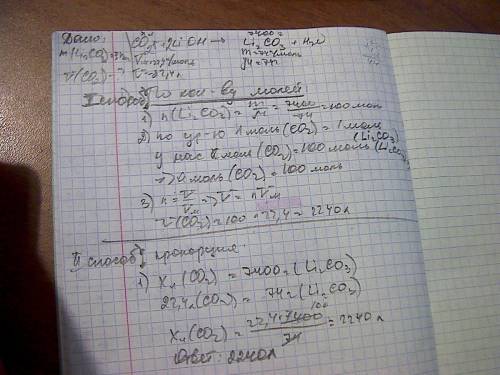 Дано:
m(Li₂CO₃)=
V(CO₂)-?
CO₂+2LiOH → Li₂CO₃ + H₂O
7400г
V=22,4л
M=74г/моль
I способ По кол-ву молей:
1) n(Li₂CO₃)= m/M = 7400/74 = 100 моль
2) по ур-ю 1 моль(CO₂) = 1 моль (Li₂CO₃)
у нас X моль (CO₂)=100 моль (Li₂CO₃)
=> моль(CO₂) = 100 моль
3) n= V/Vм => V= nVм
V(CO₂)=100 * 22,4 = 2240л
II способ пропорция.
1) Xл (CO₂) = 7400г (Li₂CO₃)
22,4л(CO₂) = 74г (Li₂CO₃)
Xл(CO₂) = 22,4*7400/74 = 2240л
100
Ответ: 2240л